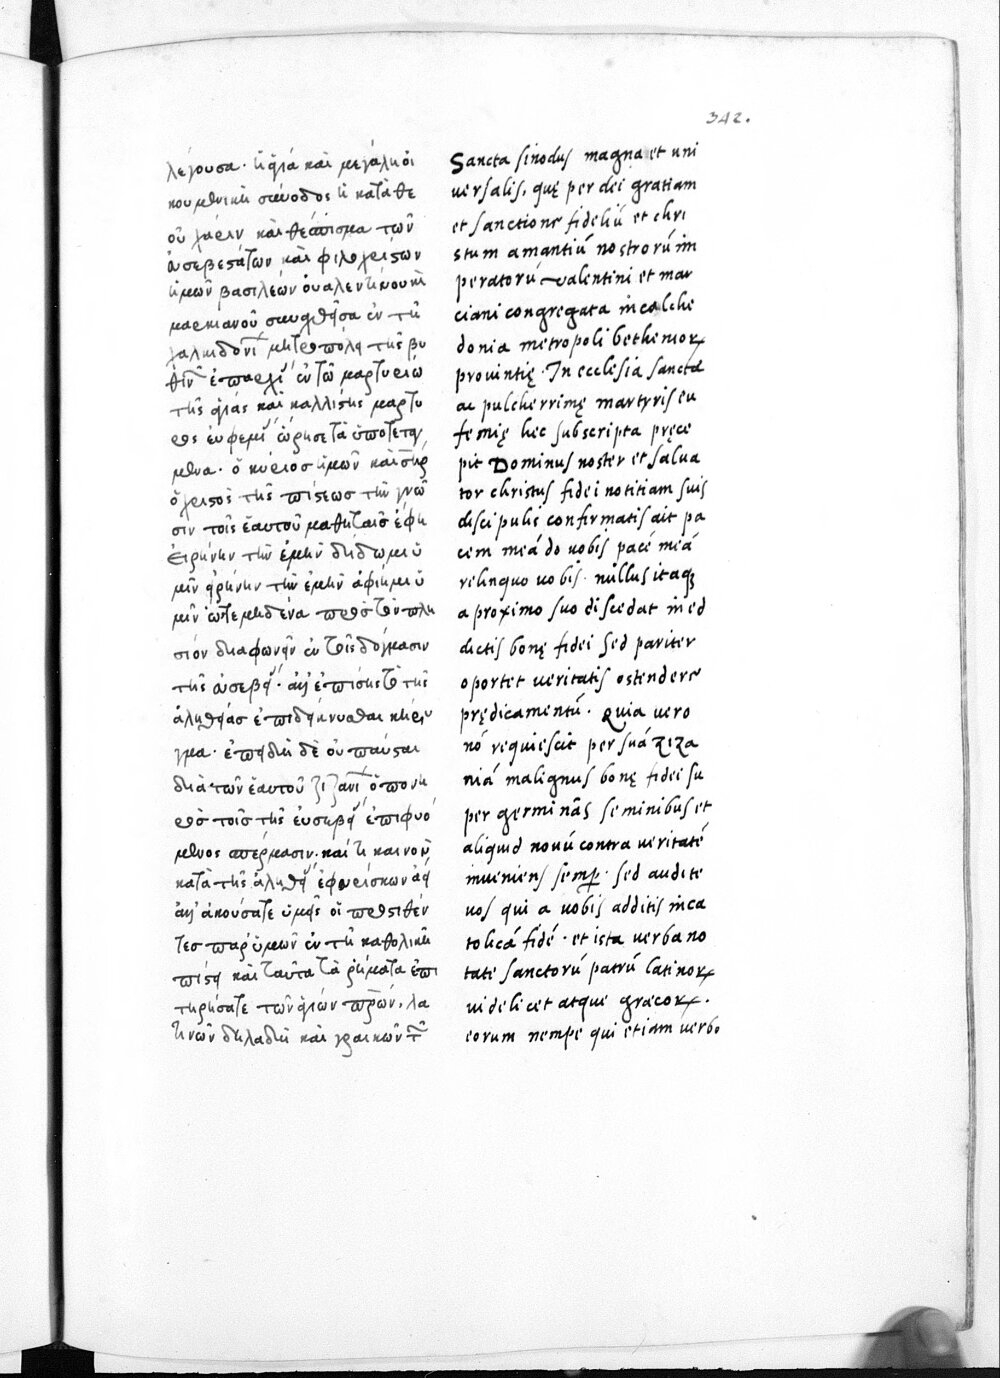 342.
λέγουσα. ἡ ἁγία καὶ μεγάλη οἰ
κουμενικὴ σύνοδος ἡ κατὰ θε
οῦ χάριν καὶ θέσπισμα τῶν
εὐσεβεστάτων καὶ φιλοχρίστων
ἡμῶν βασιλέων οὐαλεντίνου καὶ
μαρκιανοῦ συναχθεῖσα ἐν τῇ
χαλκηδονι μητροπόλει τῆς βυ
θιν ἐπαρχι ἐν τῷ μαρτυρίῳ
τῆς ἁγίας καὶ καλλινίκης μαρτυ
ρος εὐφεμι ὥρισε τὰ ὑποτεταγ
μένα. ὁ κύριος ἡμῶν καὶ σηρ
ὁ χριστὸς τῆς πίστεως τὴν γνῶ
σιν τοῖς ἑαυτοῦ μαθηταῖς ἔφη
εἰρήνην τὴν ἐμὴν δίδωμι ὑ
μῖν εἰρήνην τὴν ἐμὴν ἀφίημι ὑ
μῖν ὥστε μηδένα πρὸς τὸν πλη
σίον διαφωνεῖν ἐν τοῖς δόγμασιν
τῆς εὐσεβεί. ἀλλ' ἐπίσης τὸ τῆς
ἀληθείας ἐπιδείκνυσθαι κήρυ
γμα. ἐπειδὴ δὲ οὐ παύεται
διὰ τῶν ἑαυτοῦ ζιζανι ὁ πονη
ρὸς τοῖς τῆς εὐσεβεί ἐπιφυό
μενος σπέρμασιν. καί τι καινὸν
κατὰ τῆς ἀληθεί ἐφευρίσκων ἀεί
ἀλλ' ἀκούσατε ὑμεῖς οἱ προστιθέν
τες παρ' ὑμῶν ἐν τῇ καθολικῇ
πίστει καὶ ταῦτα τὰ ῥήματα ἐπι
τηρήσατε τῶν ἁγίων πρων, λα
τίνων δηλαδὴ καὶ γραικῶν τ
Sancta sinodus magna et uni
versalis, quę per dei gratiam
et sanctione fideliũ et chri
stum amantiũ nostrorũ im
peratorũ valentini et mar
ciani congregata in calche
donia metropoli bethenioꝝ
provintię. In ecclesia sancta
ac pulcherrimę martyris eu
femię hec subscripta pręce
pit Dominus noster et salva
tor christus fidei notitiam suis
discipulis confirmatis ait pa
cem meã do vobis pacẽ meã
relinquo vobis. nullus itaqꝫ
a proximo suo discedat in ed
dictis bonę fidei sed pariter
oportet veritatis ostendere
prędicamentũ. Quia vero
nõ requiescit per suã ziza
niã malignus bonę fidei su
per germinãs seminibus et
aliquid novũ contra veritatẽ
inveniens semꝑ. sed audite
vos qui a vobis additis in ca
tolicã fidẽ. et ista verba no
tate sanctorũ patrũ latinoꝝ
videlicet atque græcoꝝ.
eorum nempe qui etiam verbo